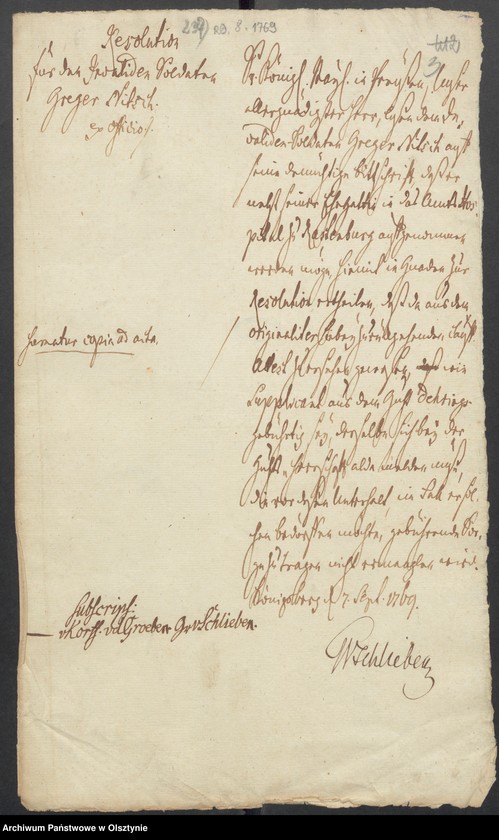 239) 29. 8. 1769
Resolution
für den Invaliden Soldaten
Greger Nitsch.
ex officio.
Sr. Königl. Mayst. in Preußen, Unser
allergnädigster Herr, lassen dem In-
validen-Soldaten Greger Nitsch auf
seine demüthige Bittschrift, daß er
nebst seiner Ehegattin in das Amts Hos-
pital zu Rastenburg aufgenommen
werden möge, hiemit in Gnaden zur
Resolution ertheilen, daß da aus dem
originaliter hiebey zurückgehenden
Attest zu ersehen gewesen, wie
Supplicant aus dem Guth
gebürtig sey, derselbe sich bey der
Guths Herrschaft alda melden muß,
die vor dessen Unterhalt, im Fall er
bedürffen möchte, gebührende Sor-
ge zu tragen nicht ermangeln wird.
Königsberg d. 7. Sept. 1769.
formetur copia ad acta.
subscrips:
vKorff. vdGroeben GrvSchlieben.
GvSchlieben
Archiwum Państwowe w Olsztynie